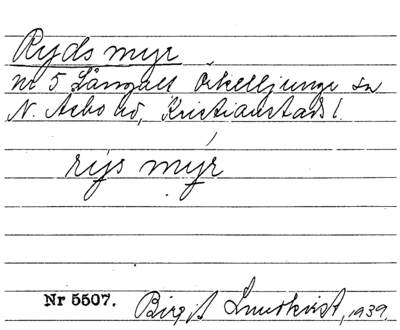 Ryds myr
nr 5 Långalt Örkelljunga sn
N. Åsbo hd, Kristianstads l.
rýs mýr
Nr 5507. Birgit Lundkvist, 1939.